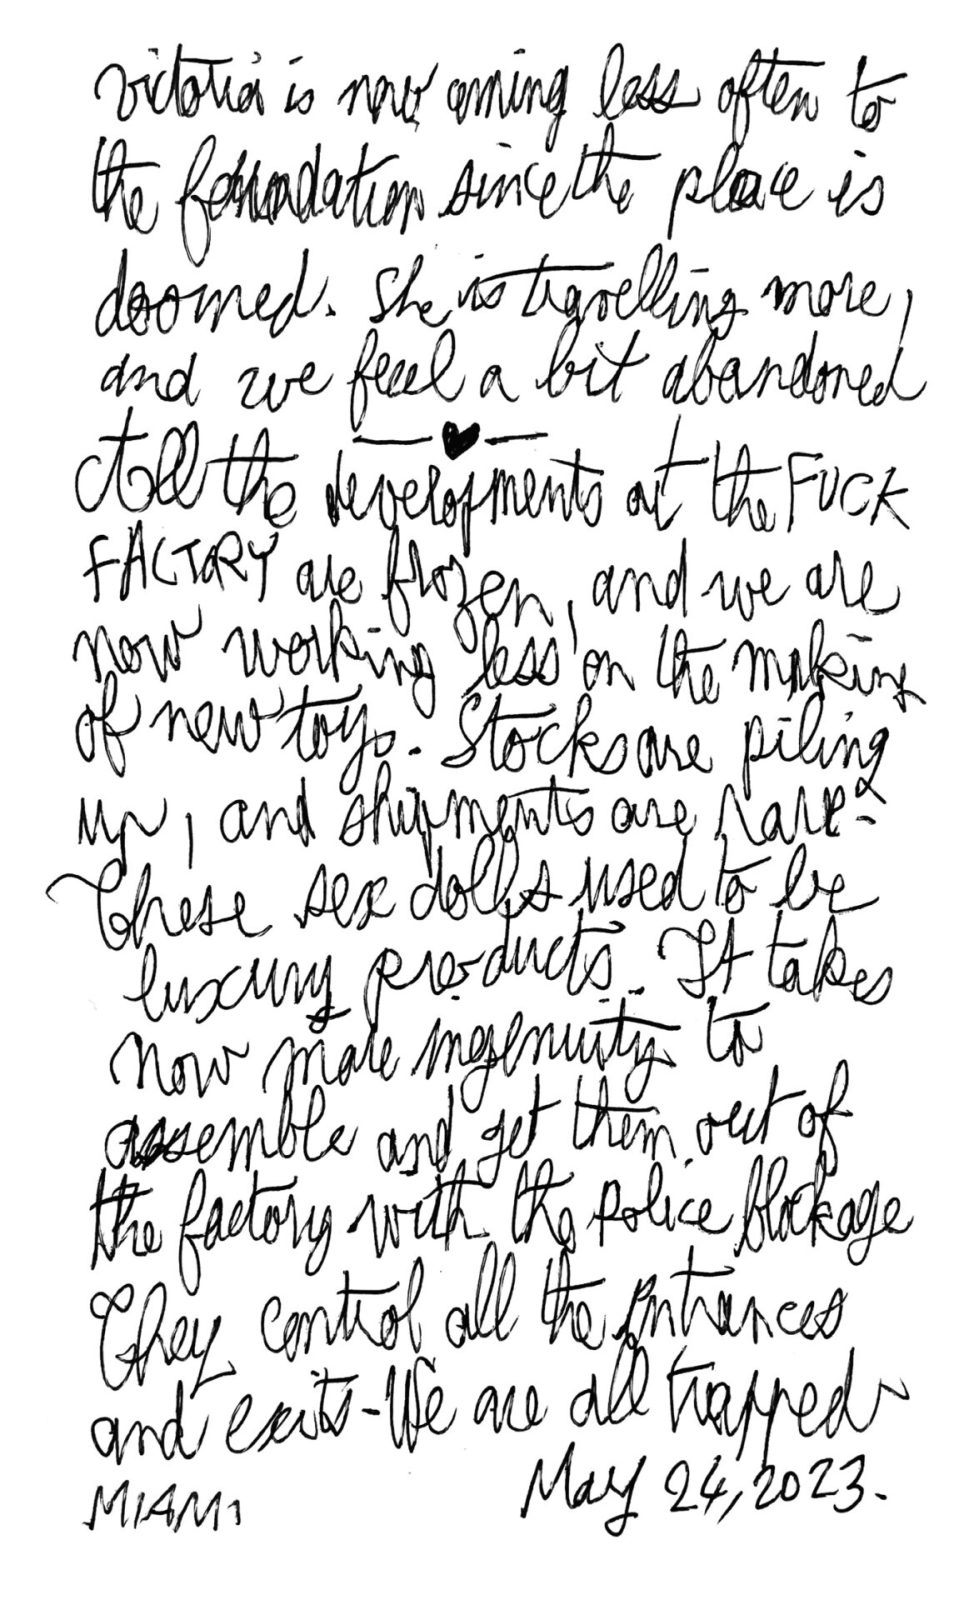 Victoria is now coming less often to
the foundation since the place is
doomed. She is travelling more,
and we feel a bit abandoned
— ♥ —
All the developments at the FUCK
FACTORY are frozen, and we are
now working less on the making
of new toys. Stocks are piling
up, and shipments are rare.
These sex dolls used to be
luxury products. It takes
now more ingenuity to
assemble and get them out of
the factory with the police blockage
They control all the entrances
and exits - We are all trapped
MIAMI May 24, 2023.